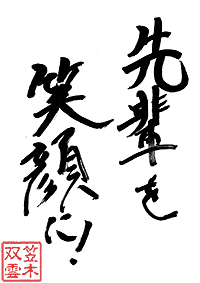 先輩を
笑顔に!
笠木
双雲